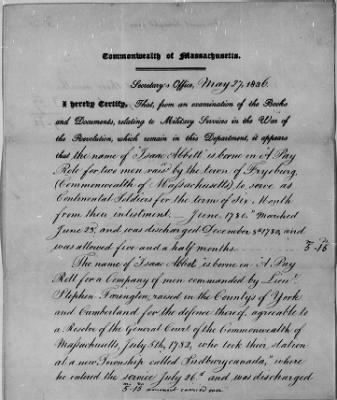 Commonwealth of Massachusetts.
Secretary's Office, May 27, 1836.
I hereby Certify, That, from an examination of the Books
and Documents, relating to Military Services in the War of
the Revolution, which remain in this Department, it appears
that the name of "Isaac Abbott" is borne on "a Pay
Role for two men rais'd by the town of Fryburg,
(Commonwealth of Massachusetts) to serve as
Continental Soldiers for the term of Six Month
from their inlistment. — June 1780." Marched
June 25, and was discharged December 8th 1780, and
was allowed five and a half months.
5 - 15
The name of "Isaac Abbot" is borne on "A Pay
Roll for a Company of men commanded by Lieut.
Stephen Farengton, raised in the Countys of York
and Cumberland for the defence thereof, agreeable to
a Resolve of the General Court of the Commonwealth of
Massachusetts, July 5th, 1782, who took their station
at a new Township called Sudburycanada," where
he entered the service July 26th and was discharged
5 - 15 amount carried over